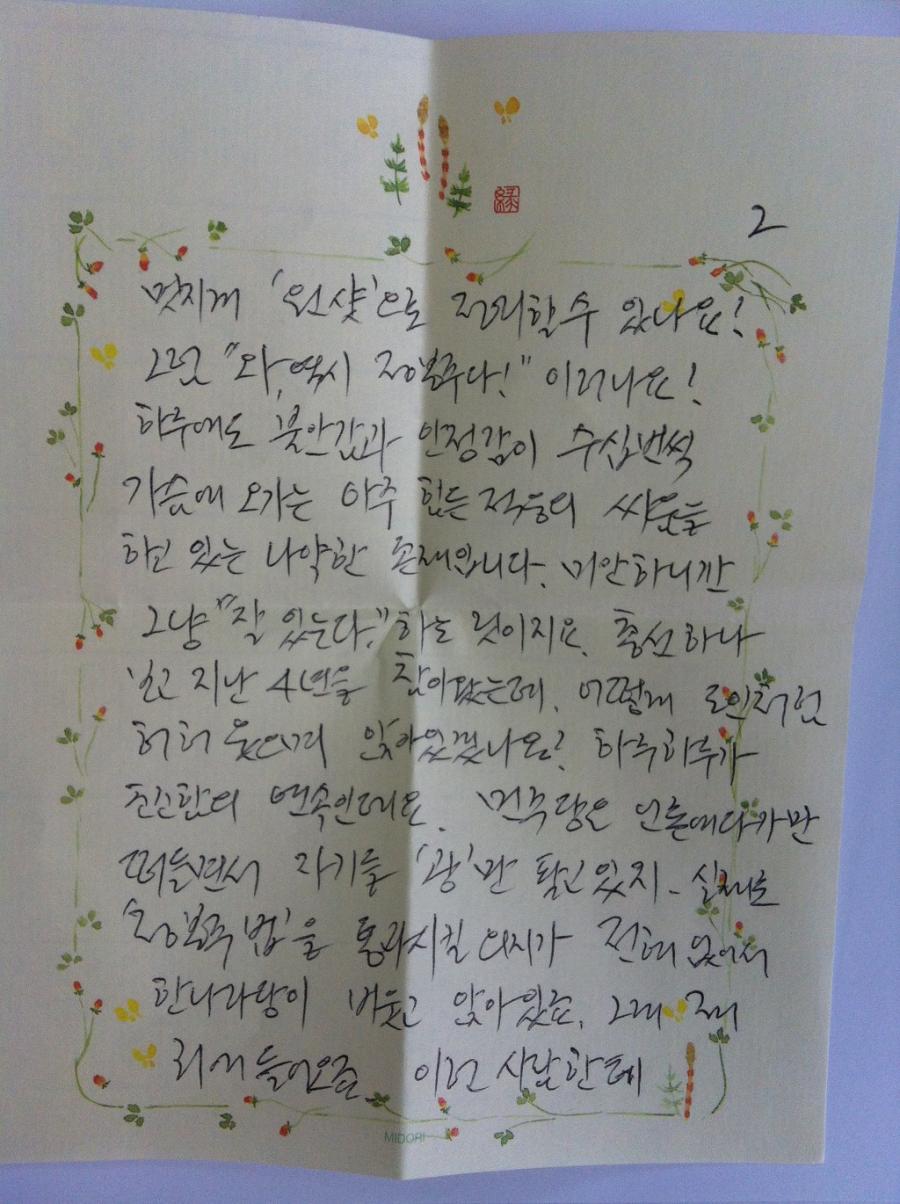 緣
2
멋지게 '원샷'으로 정리할 수 있나요!
그럼 "와, 역시 정봉주다!" 이러나요!
하루에도 불안감과 안정감이 수십번씩
가슴에 오가는 아주 힘든 적응의 싸움을
하고 있는 나약한 존재입니다. 미안하니깐
그냥 "잘 있는다." 하는 것이지요. 총선 하나
보고 지난 4년을 참아왔는데, 어떻게 도인처럼
허허 웃으며 앉아있겠나요? 하루하루가
조신함의 연속인데요. 민주당은 언론에다가만
떠들면서 자기들 '광'만 팔고 있지 - 실제로
'정봉주법'을 통과시킬 의지가 전혀 없어서
한나라당이 비웃고 앉아있고. 그게
이런 사람한테
MIDORI